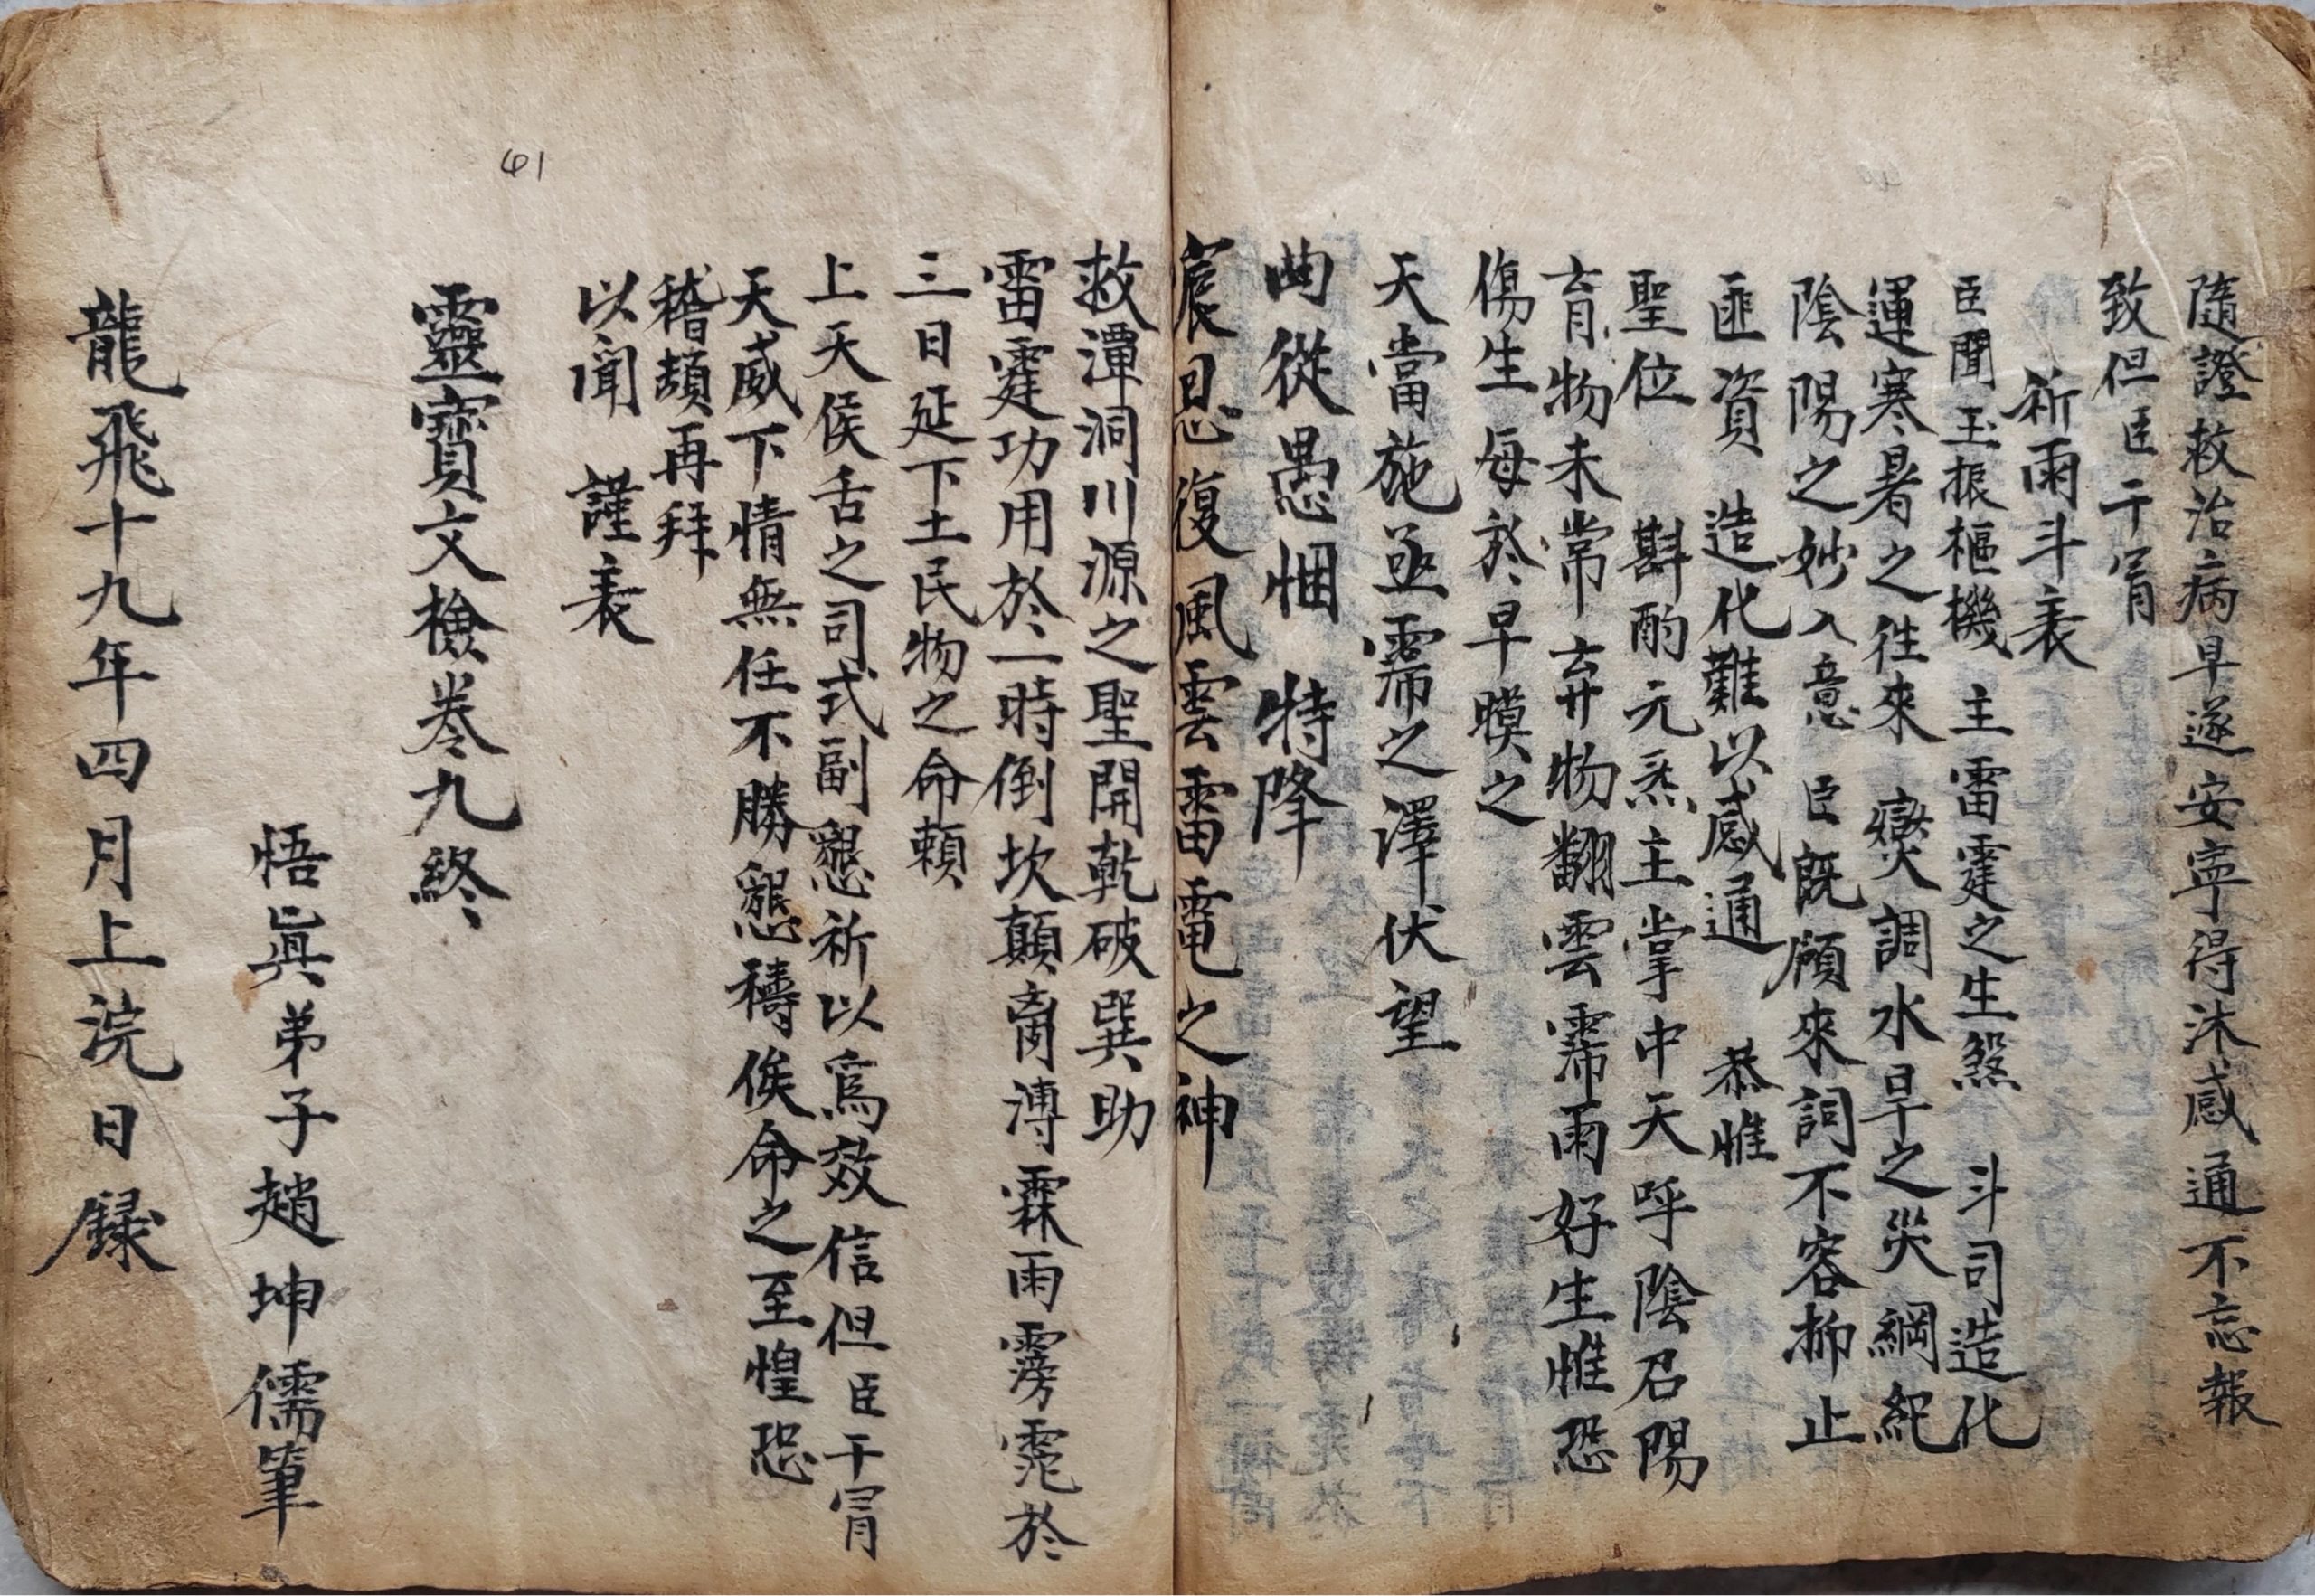 隨證救治病早遂安寧得沐感通不忘報
致但臣干冒
祈雨斗表
臣聞玉振樞機 主雷霆之生煞 斗司造化
運寒暑之往來 燮調水旱之災 綱紀
陰陽之妙入意 臣既頋來詞不容抑止
匪資 造化難以感通 恭惟
聖位 斟酌元炁主掌中天呼陰召陽
育物未常弃物翻雲霈雨好生惟恐
傷生每於旱暵之
天當施亟霈之澤伏望
曲從愚悃 特降
宸恩復風雲雷電之神
救潭洞川源之聖開乾破巽助
雷霆功用於一時倒坎顛离溥霖雨霶霓於
三日延下土民物之命賴
上天侯舌之司式副懇祈以爲效信但臣干冒
天威下情無任不勝懇禱俟命之至惶恐
稽顙再拜
以聞 謹表
靈寳文檢卷九終
悟眞弟子趙坤儒筆
龍飛十九年四月上浣日録
61